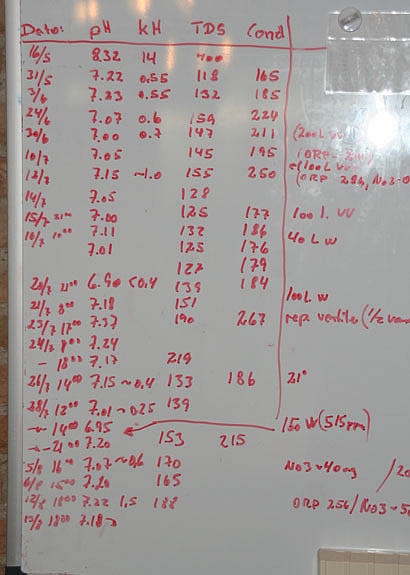 Dato: pH kH TDS Cond
16/5 8.32 14 400
31/5 7.22 0.55 118 165
3/6 7.23 0.55 132 185
24/6 7.07 0.6 159 224
30/6 7.00 0.7 147 211 (200L VV
10/7 7.05 145 195
12/7 7.15 ~1.0 155 250 (ORP 286, NO3-0
14/7 7.05 128
15/7 7.00 125 177 100 L VV
16/7 10⁰⁰ 7.11 132 186 40 L W
7.01 125 176
122 179
20/7 21⁰⁰ 6.90 <0.4 139 184
21/7 8⁰⁰ 7.18 151 100L W
23/7 17⁰⁰ 7.37 190 267 rep. (1/2
24/7 8⁰⁰ 7.24
- 18⁰⁰ 7.17 219
26/7 14⁰⁰ 7.15 ~0.4 133 186 21°
28/7 12⁰⁰ 7.01 ~0.25 139
-"- 14⁰⁰ 6.95 150 W (515ppm)
-"- 21⁰⁰ 7.20 153 215
5/8 16⁰⁰ 7.07 ~0.6 170 NO3~40mg /20
6/8 7.20 165
12/8 18⁰⁰ 7.22 1.5 188 ORP 256/NO3~5
13/8 18⁰⁰ 7.18